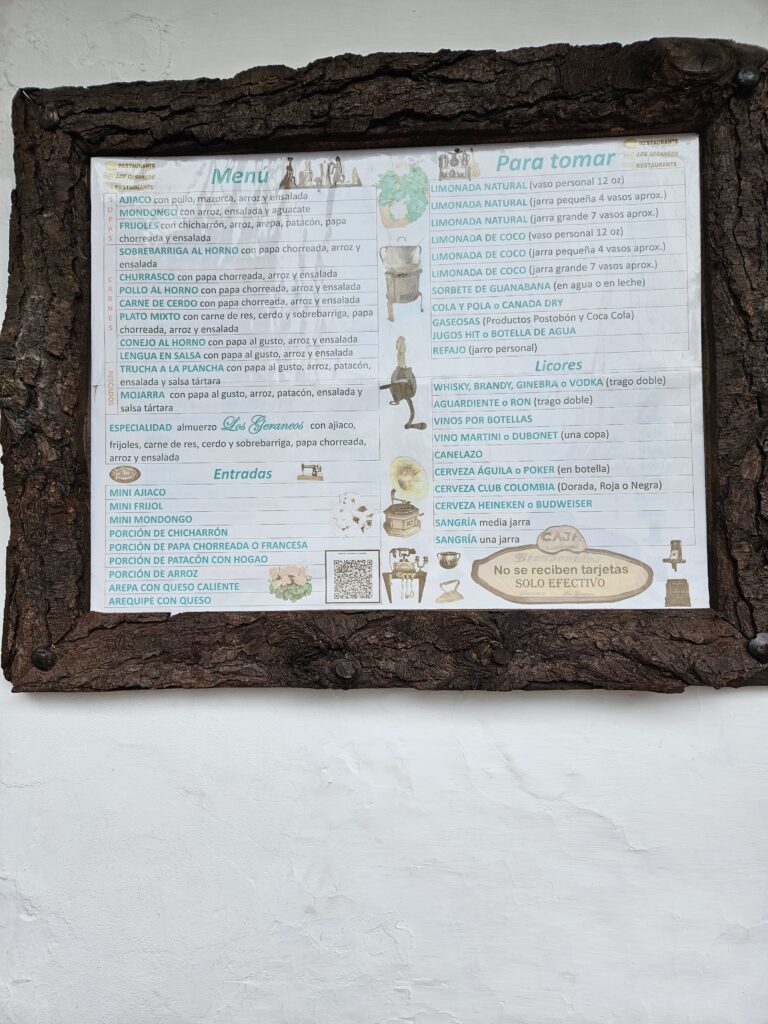 RESTAURANTE
LOS GERANEOS
RESTAURANTE
Menú
SOPAS
AJIACO con pollo, mazorca, arroz y ensalada
MONDONGO con arroz, ensalada y aguacate
FRIJOLES con chicharrón, arroz, arepa, patacón, papa
chorreada y ensalada
CARNES
SOBREBARRIGA AL HORNO con papa chorreada, arroz y
ensalada
CHURRASCO con papa chorreada, arroz y ensalada
POLLO AL HORNO con papa chorreada, arroz y ensalada
CARNE DE CERDO con papa chorreada, arroz y ensalada
PLATO MIXTO con carne de res, cerdo y sobrebarriga, papa
chorreada, arroz y ensalada
CONEJO AL HORNO con papa al gusto, arroz y ensalada
LENGUA EN SALSA con papa al gusto, arroz y ensalada
PESCADOS
TRUCHA A LA PLANCHA con papa al gusto, arroz, patacón,
ensalada y salsa tártara
MOJARRA con papa al gusto, arroz, patacón, ensalada y
salsa tártara
ESPECIALIDAD almuerzo Los Geraneos con ajiaco,
frijoles, carne de res, cerdo y sobrebarriga, papa chorreada,
arroz y ensalada
Entradas
MINI AJIACO
MINI FRIJOL
MINI MONDONGO
PORCIÓN DE CHICHARRÓN
PORCIÓN DE PAPA CHORREADA O FRANCESA
PORCIÓN DE PATACÓN CON HOGAO
PORCIÓN DE ARROZ
AREPA CON QUESO CALIENTE
AREQUIPE CON QUESO
Para tomar
RESTAURANTE
LOS GERANEOS
RESTAURANTE
LIMONADA NATURAL (vaso personal 12 oz)
LIMONADA NATURAL (jarra pequeña 4 vasos aprox.)
LIMONADA NATURAL (jarra grande 7 vasos aprox.)
LIMONADA DE COCO (vaso personal 12 oz)
LIMONADA DE COCO (jarra pequeña 4 vasos aprox.)
LIMONADA DE COCO (jarra grande 7 vasos aprox.)
SORBETE DE GUANABANA (en agua o en leche)
COLA Y POLA o CANADA DRY
GASEOSAS (Productos Postobón y Coca Cola)
JUGOS HIT o BOTELLA DE AGUA
REFAJO (jarro personal)
Licores
WHISKY, BRANDY, GINEBRA o VODKA (trago doble)
AGUARDIENTE o RON (trago doble)
VINOS POR BOTELLAS
VINO MARTINI o DUBONET (una copa)
CANELAZO
CERVEZA ÁGUILA o POKER (en botella)
CERVEZA CLUB COLOMBIA (Dorada, Roja o Negra)
CERVEZA HEINEKEN o BUDWEISER
SANGRÍA media jarra
SANGRÍA una jarra
CAJA
No se reciben tarjetas
SOLO EFECTIVO